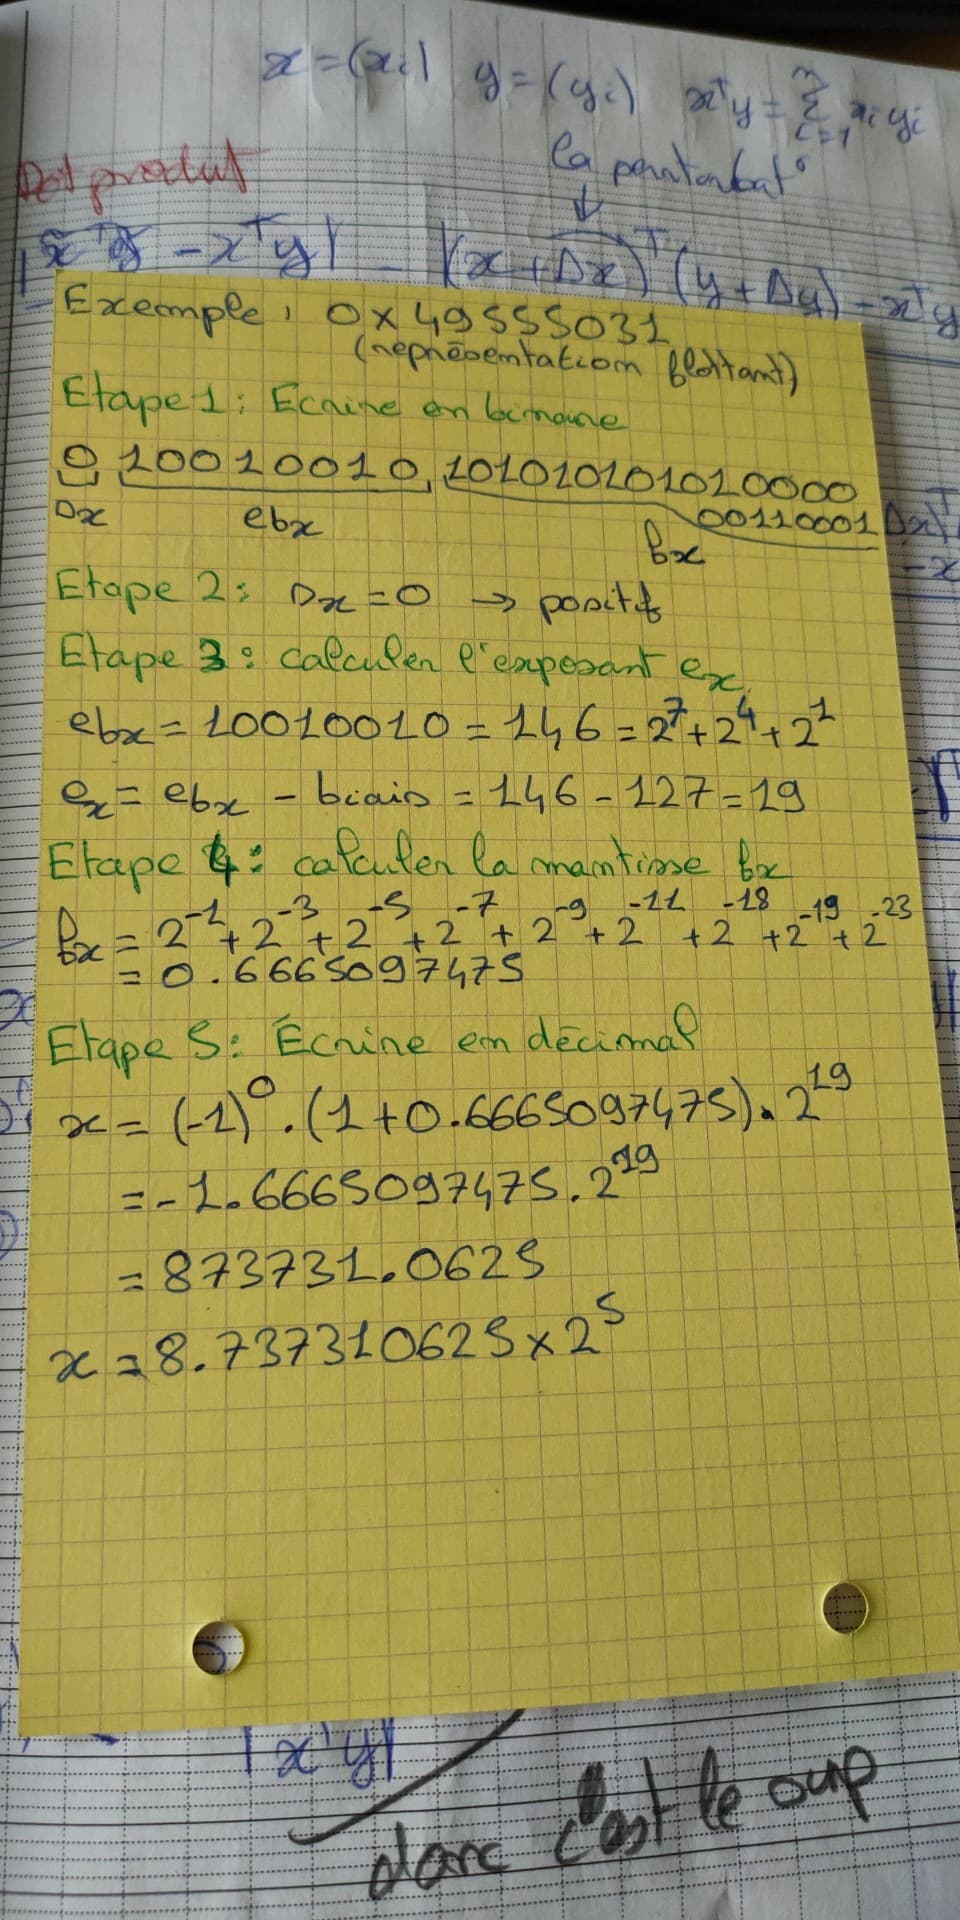 x = (xi) y = (yi) xᵀy = Σ xi yi
n
i=1
la perturbat°
↓
Dot produt
|x̂ᵀŷ - xᵀy| = |(x+Δx)ᵀ(y+Δy) - xᵀy
Exemple: 0x49555031
(représentation flottant)
Etape 1: Ecrire en binaire
0 10010010, 101010101010000
00110001
Dx ebx fx
Δx)ᵀ
-x
Etape 2: Dx = 0 → positif
Etape 3: calculer l'exposant ex
ebx = 10010010 = 146 = 2⁷ + 2⁴ + 2¹
ex = ebx - biais = 146 - 127 = 19
Etape 4: calculer la mantisse fx
fx = 2⁻¹ + 2⁻³ + 2⁻⁵ + 2⁻⁷ + 2⁻⁹ + 2⁻¹¹ + 2⁻¹⁸ + 2⁻¹⁹ + 2⁻²³
= 0.6665097475
Etape 5: Écrire en décimal
x = (-1)⁰ . (1+0.6665097475). 2¹⁹
= -1.6665097475 . 2¹⁹
= 873731.0625
x = 8.737310625 x 2⁵
|xᵀy|
donc c'est le oup